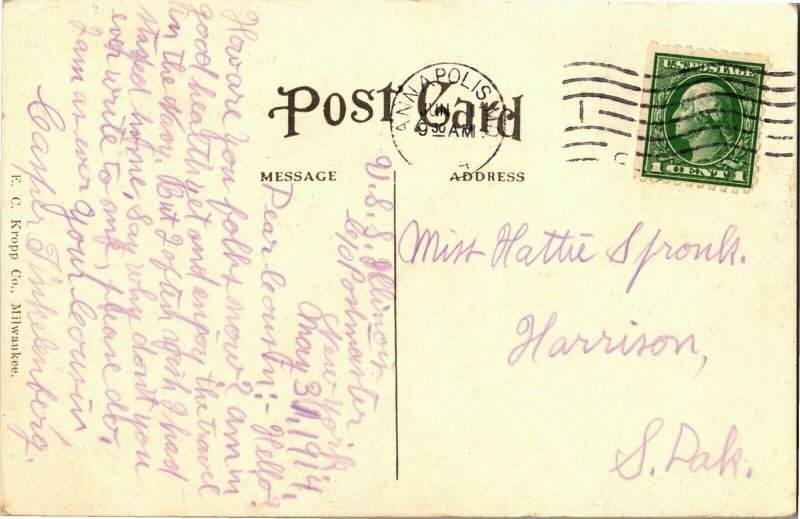 Post Card
ANNAPOLIS
JUN
9 30 AM
U.S. POSTAGE
1 CENT 1
MESSAGE
ADDRESS
U.S.S. Illinois
c/o Postmaster
New York
May 31, 1914.
Dear Cousin:- Hello?
How are you folks now? am in
good health yet and enjoy the travel
in the Navy. But I often wish I had
stayed home, say why dont you
ever write to me, please do,
I am as ever your Cousin
Casper Tinkelenberg.
Miss Hattie Spronk.
Harrison,
S. Dak.
E. C. Kropp Co., Milwaukee.